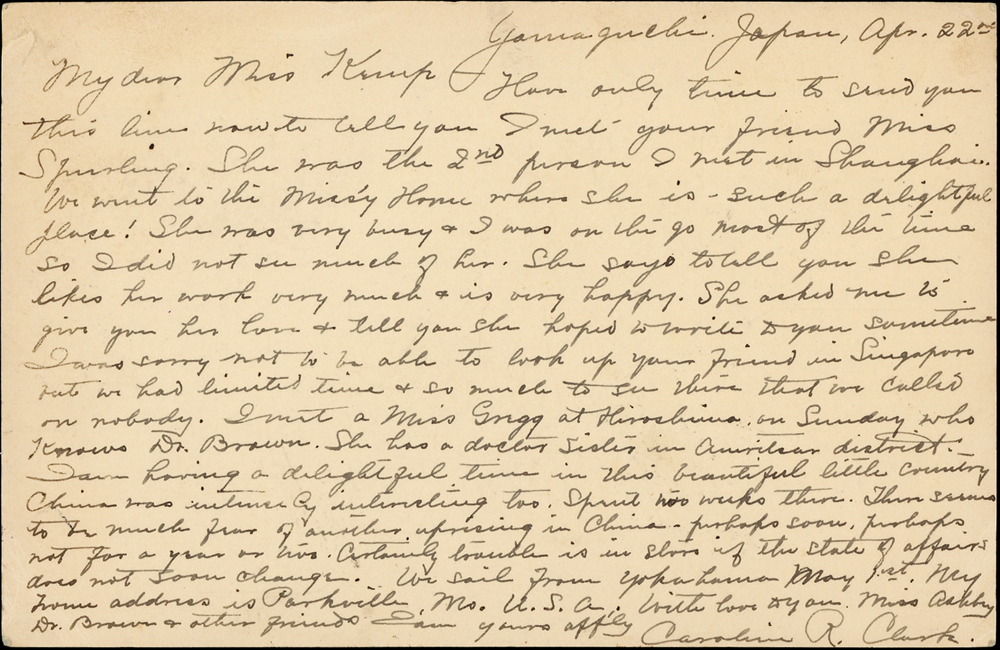 Yamaguchi. Japan, Apr. 22nd
My dear Miss Kemp Have only time to send you
this line now to tell you I met your friend Miss
Spurling. She was the 2nd person I met in Shanghai.
We went to the Miss'y Home where she is - such a delightful
place! She was very busy & I was on the go most of the time
so I did not see much of her. She says to tell you she
likes her work very much & is very happy. She asked me to
give you her love & tell you she hoped to write to you sometime
I was sorry not to be able to look up your friend in Singapore
but we had limited time & so much to see there that we called
on nobody. I met a Miss Grigg at Hiroshima on Sunday who
knows Dr. Brown. She has a doctor sister in Amritsar district. -
I am having a delightful time in this beautiful little country
China was intensely interesting too. Spent two weeks there. There seems
to be much fear of another uprising in China - perhaps soon, perhaps
not for a year or two. Certainly trouble is in store if the state of affairs
does not soon change. We sail from Yokohama May 1st. My
home address is Parkville, Mo. U.S.A. With love to you. Miss Ashby
Dr. Brown & other friends I am yours affly Caroline R. Clark.